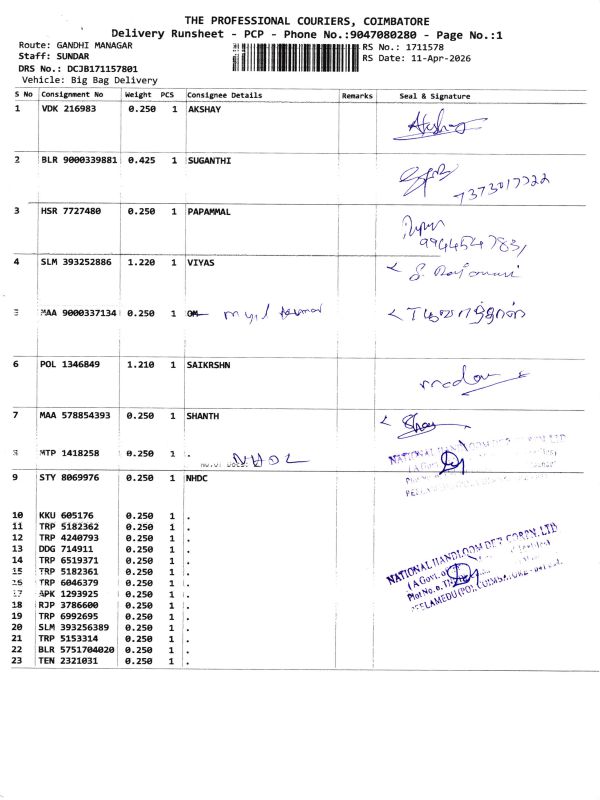 THE PROFESSIONAL COURIERS, COIMBATORE
Delivery Runsheet - PCP - Phone No.:9047080280 - Page No.:1
Route: GANDHI MANAGAR
RS No.: 1711578
Staff: SUNDAR
RS Date: 11-Apr-2026
DRS No.: DCJB171157801
Vehicle: Big Bag Delivery
S No Consignment No Weight PCS Consignee Details Remarks Seal & Signature
1 VDK 216983 0.250 1 AKSHAY
2 BLR 9000339881 0.425 1 SUGANTHI
7373017722
3 HSR 7727480 0.250 1 PAPAMMAL
9944547831
4 SLM 393252886 1.220 1 VIYAS
MAA 9000337134 0.250 1 OM
6 POL 1346849 1.210 1 SAIKRSHN
7 MAA 578854393 0.250 1 SHANTH
MTP 1418258 0.250 1 . NHDC
9 STY 8069976 0.250 1 NHDC
10 KKU 605176 0.250 1 .
11 TRP 5182362 0.250 1 .
12 TRP 4240793 0.250 1 .
13 DDG 714911 0.250 1 .
14 TRP 6519371 0.250 1 .
15 TRP 5182361 0.250 1 .
16 TRP 6046379 0.250 1 .
17 APK 1293925 0.250 1 .
18 RJP 3786600 0.250 1 .
19 TRP 6992695 0.250 1 .
20 SLM 393256389 0.250 1 .
21 TRP 5153314 0.250 1 .
22 BLR 5751704020 0.250 1 .
23 TEN 2321031 0.250 1 .
NATIONAL HANDLOOM DEV CORPN. LTD
(A Govt. of
Plot No.
PEELAMEDU (PO), COIMBATORE